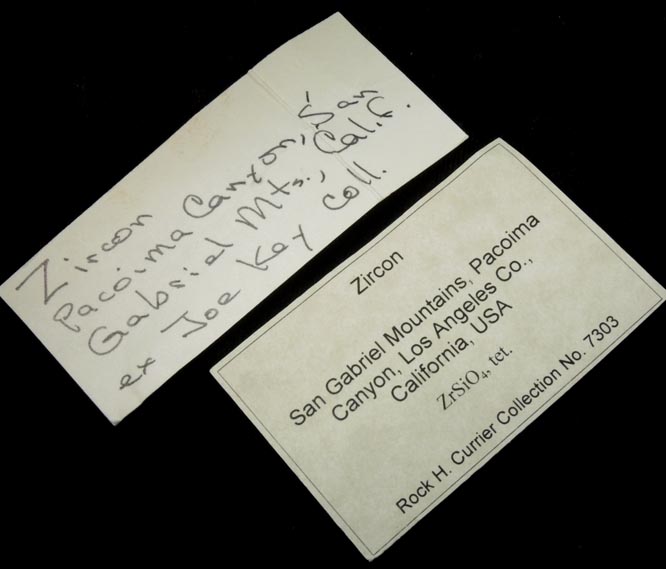 Zircon
Pacoima Canyon, San
Gabriel Mts., Calif.
ex Joe Kay Coll.
Zircon
San Gabriel Mountains, Pacoima
Canyon, Los Angeles Co.,
California, USA
ZrSiO₄, tet.
Rock H. Currier Collection No. 7303